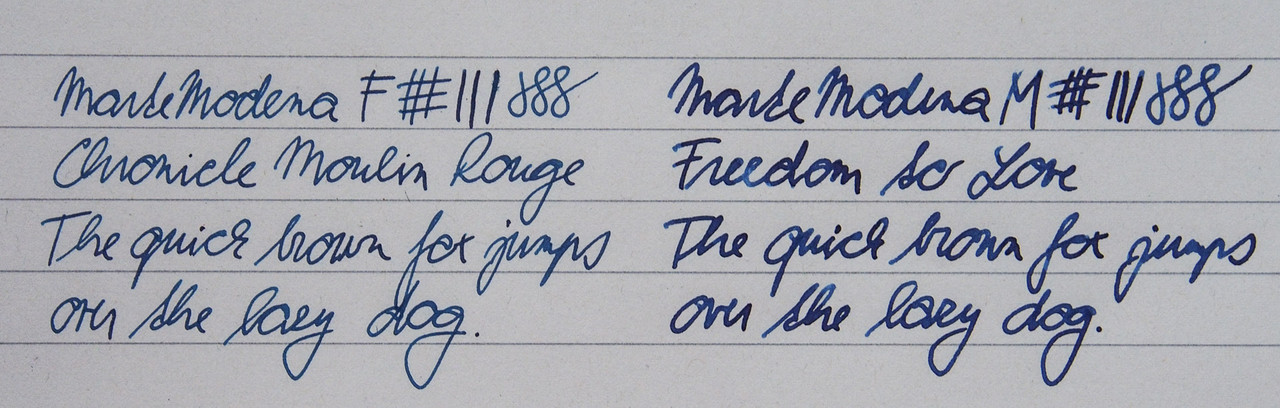 MonteModena F # ||| 888
Chronicle Moulin Rouge
The quick brown fox jumps
over the lazy dog.
MonteModena M # ||| 888
Freedom so Love
The quick brown fox jumps
over the lazy dog.